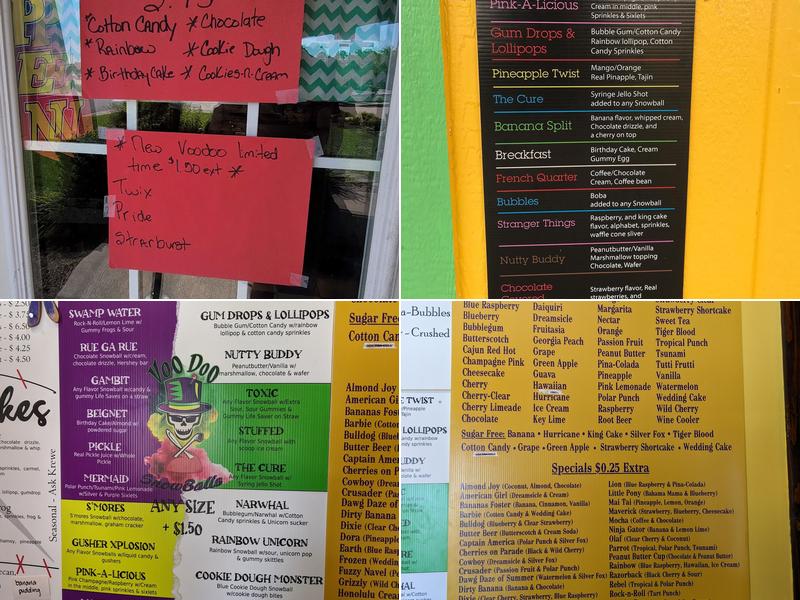 Cotton Candy * Chocolate
* Rainbow * Cookie Dough
* Birthday Cake * Cookies-n-Cream
* New Voodoo limited
time $1.50 ext *
Twix
Pride
Starburst
Pink-A-Licious
Cream in middle, pink
Sprinkles & Sixlets
Gum Drops &
Lollipops
Bubble Gum/Cotton Candy
Rainbow lollipop, Cotton
Candy Sprinkles
Pineapple Twist
Mango/Orange
Real Pinapple, Tajin
The Cure
Syringe Jello Shot
added to any Snowball
Banana Split
Banana flavor, whipped cream,
Chocolate drizzle, and
a cherry on top
Breakfast
Birthday Cake, Cream
Gummy Egg
French Quarter
Coffee/Chocolate
Cream, Coffee bean
Bubbles
Boba
added to any Snowball
Stranger Things
Raspberry, and king cake
flavor, alphabet, sprinkles,
waffle cone sliver
Nutty Buddy
Peanutbutter/Vanilla
Marshmallow topping
Chocolate, Wafer
Chocolate
Strawberry flavor, Real
strawberries, and
- $ 3.75
- $ 6.50
- $ 4.00
- $ 4.25
- $ 4.50
kes
Seasonal - Ask Krewe
banana
pudding
SWAMP WATER
Rock-N-Roll/Lemon Lime w/
Gummy Frogs & Sour
RUE GA RUE
Chocolate Snowball w/cream,
chocolate drizzle, Hershey bar
GAMBIT
Any Flavor Snowball w/candy &
gummy Life Savers on a straw
BEIGNET
Birthday Cake/Almond w/
powdered sugar
PICKLE
Real Pickle Juice w/Whole
Pickle
MERMAID
Polar Punch/Tsunami/Pink Lemonade
w/Silver & Purple Sixlets
S'MORES
S'mores Snowball w/chocolate,
marshmallow, graham cracker
GUSHER XPLOSION
Any Flavor Snowball w/liquid candy &
gushers
PINK-A-LICIOUS
Pink Champagne/Raspberry w/Cream
in the middle, pink sprinkles & sixlets
Voo Doo
SnowBalls
ANY SIZE
+ $1.50
GUM DROPS & LOLLIPOPS
Bubble Gum/Cotton Candy w/rainbow
lollipop & cotton candy sprinkles
NUTTY BUDDY
Peanutbutter/Vanilla w/
marshmallow, chocolate & wafer
TOXIC
Any Flavor Snowball w/Extra
Sour, Sour Gummies &
Gummy Life Saver on Straw
STUFFED
Any Flavor Snowball with
scoop ice cream
THE CURE
Any Flavor Snowball w/
Syring Jello Shot
NARWHAL
Bubblegum/Narwhal w/Cotton
Candy sprinkles & Unicorn sucker
RAINBOW UNICORN
Rainbow Snowball w/sour, unicorn pop
& gummy skittles
COOKIE DOUGH MONSTER
Blue Cookie Dough Snowball
w/cookie dough bites
Sugar Free
Cotton Can
Almond Joy
American Gi
Bananas Fost
Barbie (Cott
Bulldog (Blue
Butter Beer (
Captain Amer
Cherries on P
Cowboy (Drea
Crusader (Pas
Dawg Daze of
Dirty Banana
Dixie (Clear Ch
Dora (Pineapp
Earth (Blue Ras
Frozen (Wedding
Fuzzy Navel (Pe
Grizzly (Wild C
Honolulu Cream
a-Bubbles
-Crushed
TWIST
LOLLOPS
UDDY
Blue Raspberry
Blueberry
Bubblegum
Butterscotch
Cajun Red Hot
Champagne Pink
Cheesecake
Cherry
Cherry-Clear
Cherry Limeade
Chocolate
Daiquiri
Dreamsicle
Fruitasia
Georgia Peach
Grape
Green Apple
Guava
Hawaiian
Hurricane
Ice Cream
Key Lime
Margarita
Nectar
Orange
Passion Fruit
Peanut Butter
Pina-Colada
Pineapple
Pink Lemonade
Polar Punch
Raspberry
Root Beer
Strawberry Shortcake
Sweet Tea
Tiger Blood
Tropical Punch
Tsunami
Tutti Frutti
Vanilla
Watermelon
Wedding Cake
Wild Cherry
Wine Cooler
Sugar Free: Banana • Hurricane • King Cake • Silver Fox • Tiger Blood
Cotton Candy • Grape • Green Apple • Strawberry Shortcake • Wedding Cake
Specials $0.25 Extra
Almond Joy (Coconut, Almond, Chocolate)
American Girl (Dreamsicle & Cream)
Bananas Foster (Banana, Cinnamon, Vanilla)
Barbie (Cotton Candy & Wedding Cake)
Bulldog (Blueberry & Clear Strawberry)
Butter Beer (Butterscotch & Cream Soda)
Captain America (Polar Punch & Silver Fox)
Cherries on Parade (Black & Wild Cherry)
Cowboy (Dreamsicle & Silver Fox)
Crusader (Passion Fruit & Polar Punch)
Dawg Daze of Summer (Watermelon & Silver Fox)
Dirty Banana (Banana & Chocolate)
Dixie (Clear Cherry, Strawberry, Blue Raspberry)
Lion (Blue Raspberry & Pina-Colada)
Little Pony (Bahama Mama & Blueberry)
Mai Tai (Pineapple, Lemon, Orange)
Maverick (Strawberry, Blueberry, Cheesecake)
Mocha (Coffee & Chocolate)
Ninja Gator (Banana & Lemon Lime)
Olaf (Clear Cherry & Coconut)
Parrot (Tropical, Polar Punch, Tsunami)
Peanut Butter Cup (Chocolate & Peanut Butter)
Rainbow (Blue Raspberry, Hawaiian, Ice Cream)
Razorback (Black Cherry & Sour)
Rebel (Blueberry & Cherry)
Rock-n-Roll (Tart Punch)